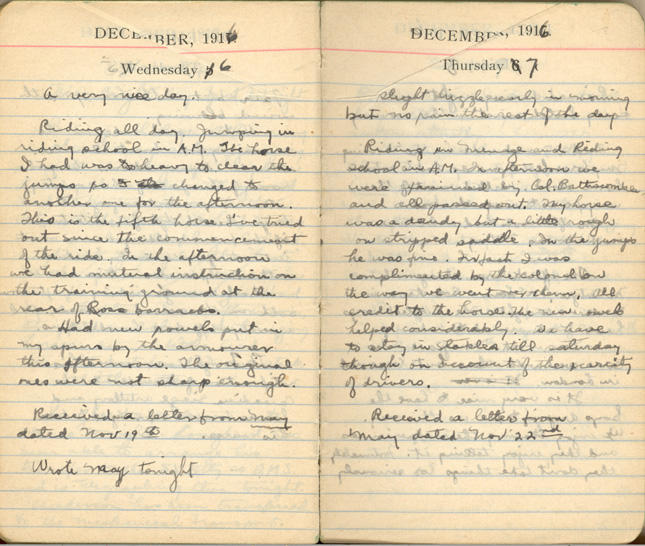 DECEMBER, 1916
Wednesday 6
A very nice day.
Riding all day. Jumping in
riding school in A.M. The horse
I had was to heavy to clear the
jumps so I changed to
another one for the afternoon.
This is the fifth horse I've tried
out since the commencement
of the ride. In the afternoon
we had mutual instruction on
the training ground at the
rear of Ross barracks.
Had new rowels put in
my spurs by the armourer
this afternoon. The original
ones were not sharp enough.
Received a letter from May
dated Nov 19th
Wrote May tonight
DECEMBER, 1916
Thursday 7
Slight drizzle early in morning
but no rain the rest of the day
Riding in menage and Riding
school in A.M. In afternoon we
were examined by Col. Battiscombe
and all passed out. My horse
was a dandy but a little rough
on stripped saddle. On the jumps
he was fine. In fact I was
complimented by the colonel on
the way we went over them. All
credit to the horse. The new rowels
helped considerably. We have
to stay in till saturday
though on account of the scarcity
of drivers.
Received a letter from
May dated Nov 22nd